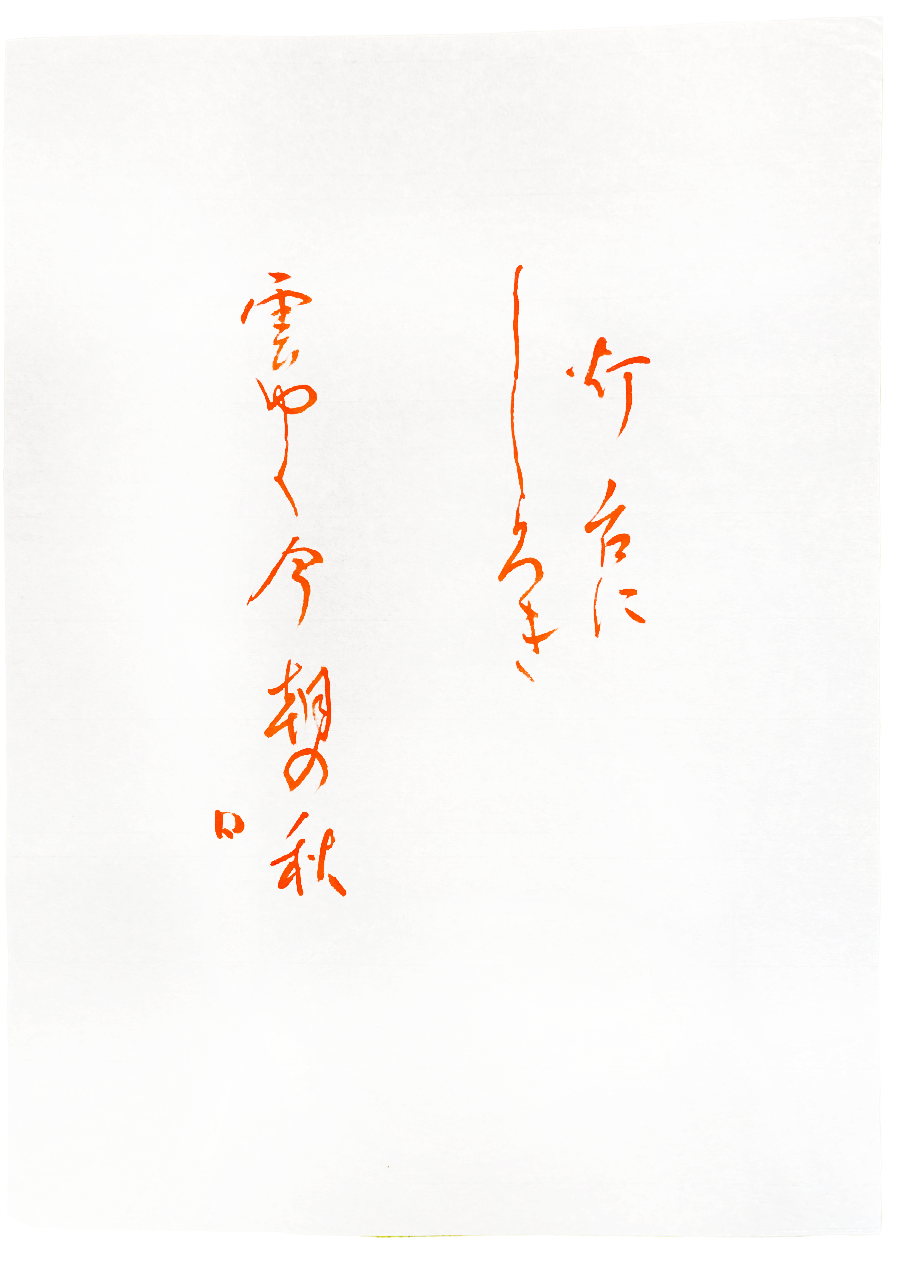 灯台に
しろき
雲ゆく今
朝の秋